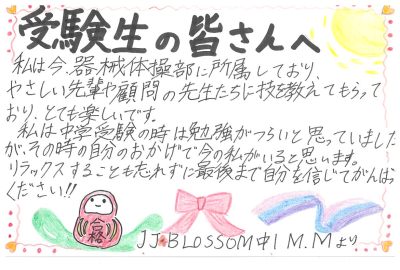 受験生の皆さんへ
私は今、器械体操部に所属しており、
やさしい先輩や顧問の先生たちに技を教えてもらって
おり、とても楽しいです。
私は中学受験の時は勉強がつらいと思っていました
が、その時の自分のおかげで今の私がいると思います。
リラックスすることも忘れずに最後まで自分を信じてがんばって
ください!!
合格
JJ BLOSSOM中1 M.Mより